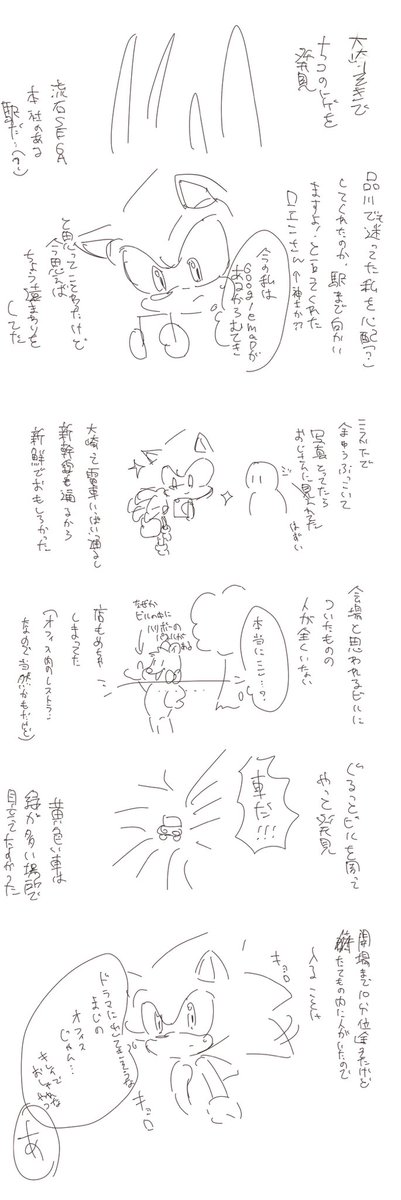 大崎駅で
ナコのハゲを
発見
流石SEGA
本社のある
駅だ…(?)
品川で迷ってた私を心配(?)
してくれたのか、駅まで向かい
ますよ!と言ってくれた
ロエニさん
↑神士か??
今の私は
Googlemapが
あるからむてき
と思ってことわったけど
今思えば
ちょう遠まわりを
してた
写真とってたら
おじさんに見られた
はずい
大崎って電車いっぱい通るし
新幹線も通るから
新鮮でおもしろかった
会場と思われるビルに
ついたものの
人が全くいない
本当にここ…?
なぜか
ビルの中に
ハリボーの
パネルがある
店もめっちゃ
しまってた
(オフィス内のレストラン
なので当然かもだけど)
ぐるっとビルを周って
やっと発見
車だ!!!
黄色い車は
緑が多い場所で
目立ってたすかった
開場まで10分位全るけど
たてもの内に人がいたので
入ることに
キョロ
キョロ
ドラマに出てきそうな
まじの
オフィス
じゃん…
きれいで
おしゃれな
やつ
あ